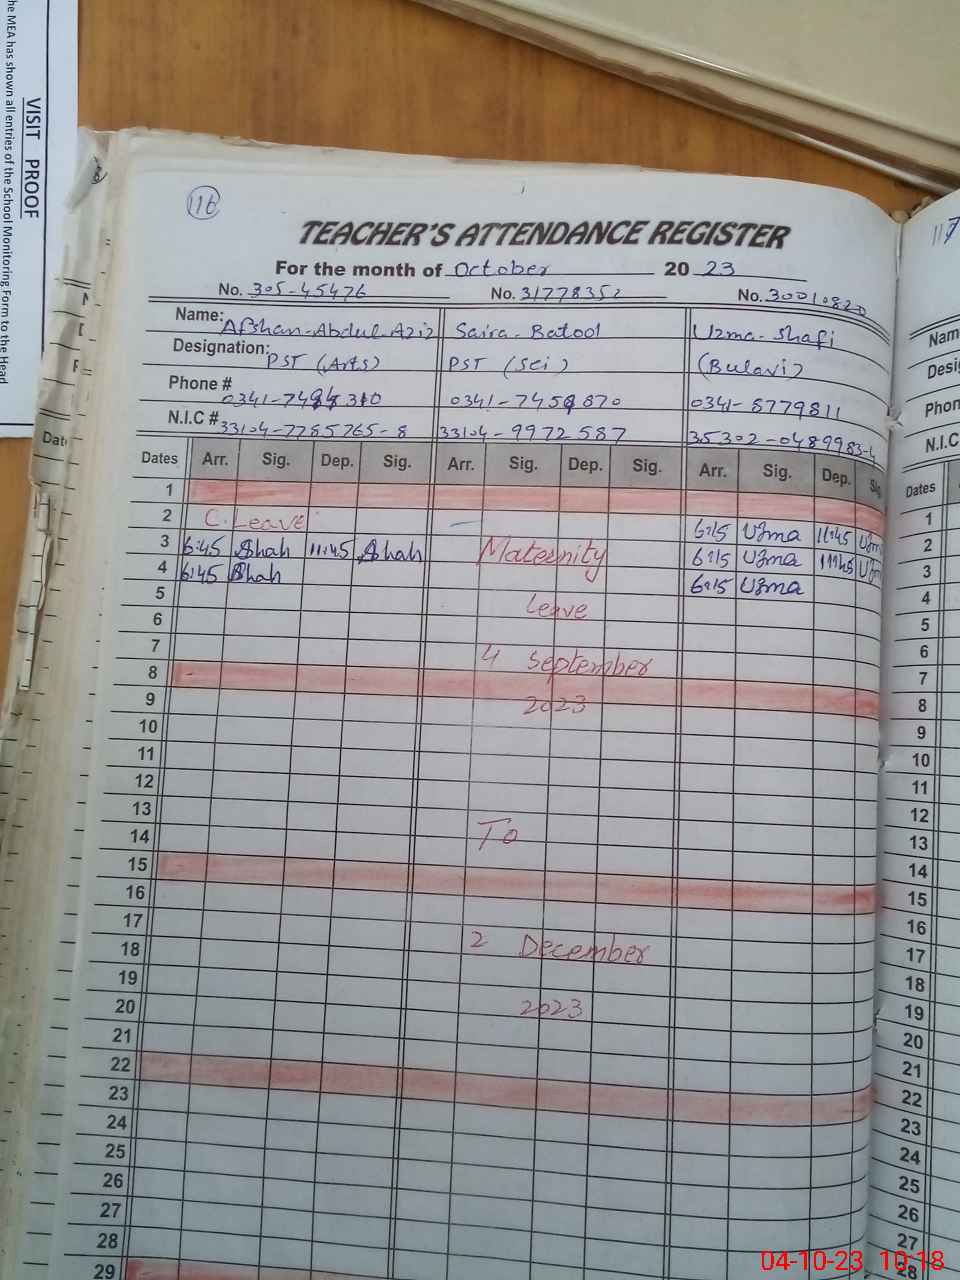 he MEA has shown all entries of the School Monitoring Form to the Head
VISIT PROOF
116
TEACHER'S ATTENDANCE REGISTER
For the month of October 20 23
No. 305-45476 No. 31778352 No. 30010820
Name: Afshan-Abdul Aziz Saira-Batool Uzma-Shafi
Designation: PST (Arts) PST (Sci) (Bulavi)
Phone # 0341-7459870 0341-8779811
N.I.C # 33104-7785765-8 33104-9972587 35302-0489983-4
Dates Arr. Sig. Dep. Sig. Arr. Sig. Dep. Sig. Arr. Sig. Dep. Sig.
1
2 C. Leave 6:15 Uzma 11:45 Uzma
3 6:45 Shah 11:45 Shah Maternity 6:15 Uzma 11:45 Uzma
4 6:45 Shah 6:15 Uzma
5 Leave
6
7 4 September
8
9 2023
10
11
12
13
14 To
15
16
17
18 2 December
19
20 2023
21
22
23
24
25
26
27
28
29
117
Name
Desig
Phon
N.I.C
Dates
1
2
3
4
5
6
7
8
9
10
11
12
13
14
15
16
17
18
19
20
21
22
23
24
25
26
27
28
04-10-23 10:18